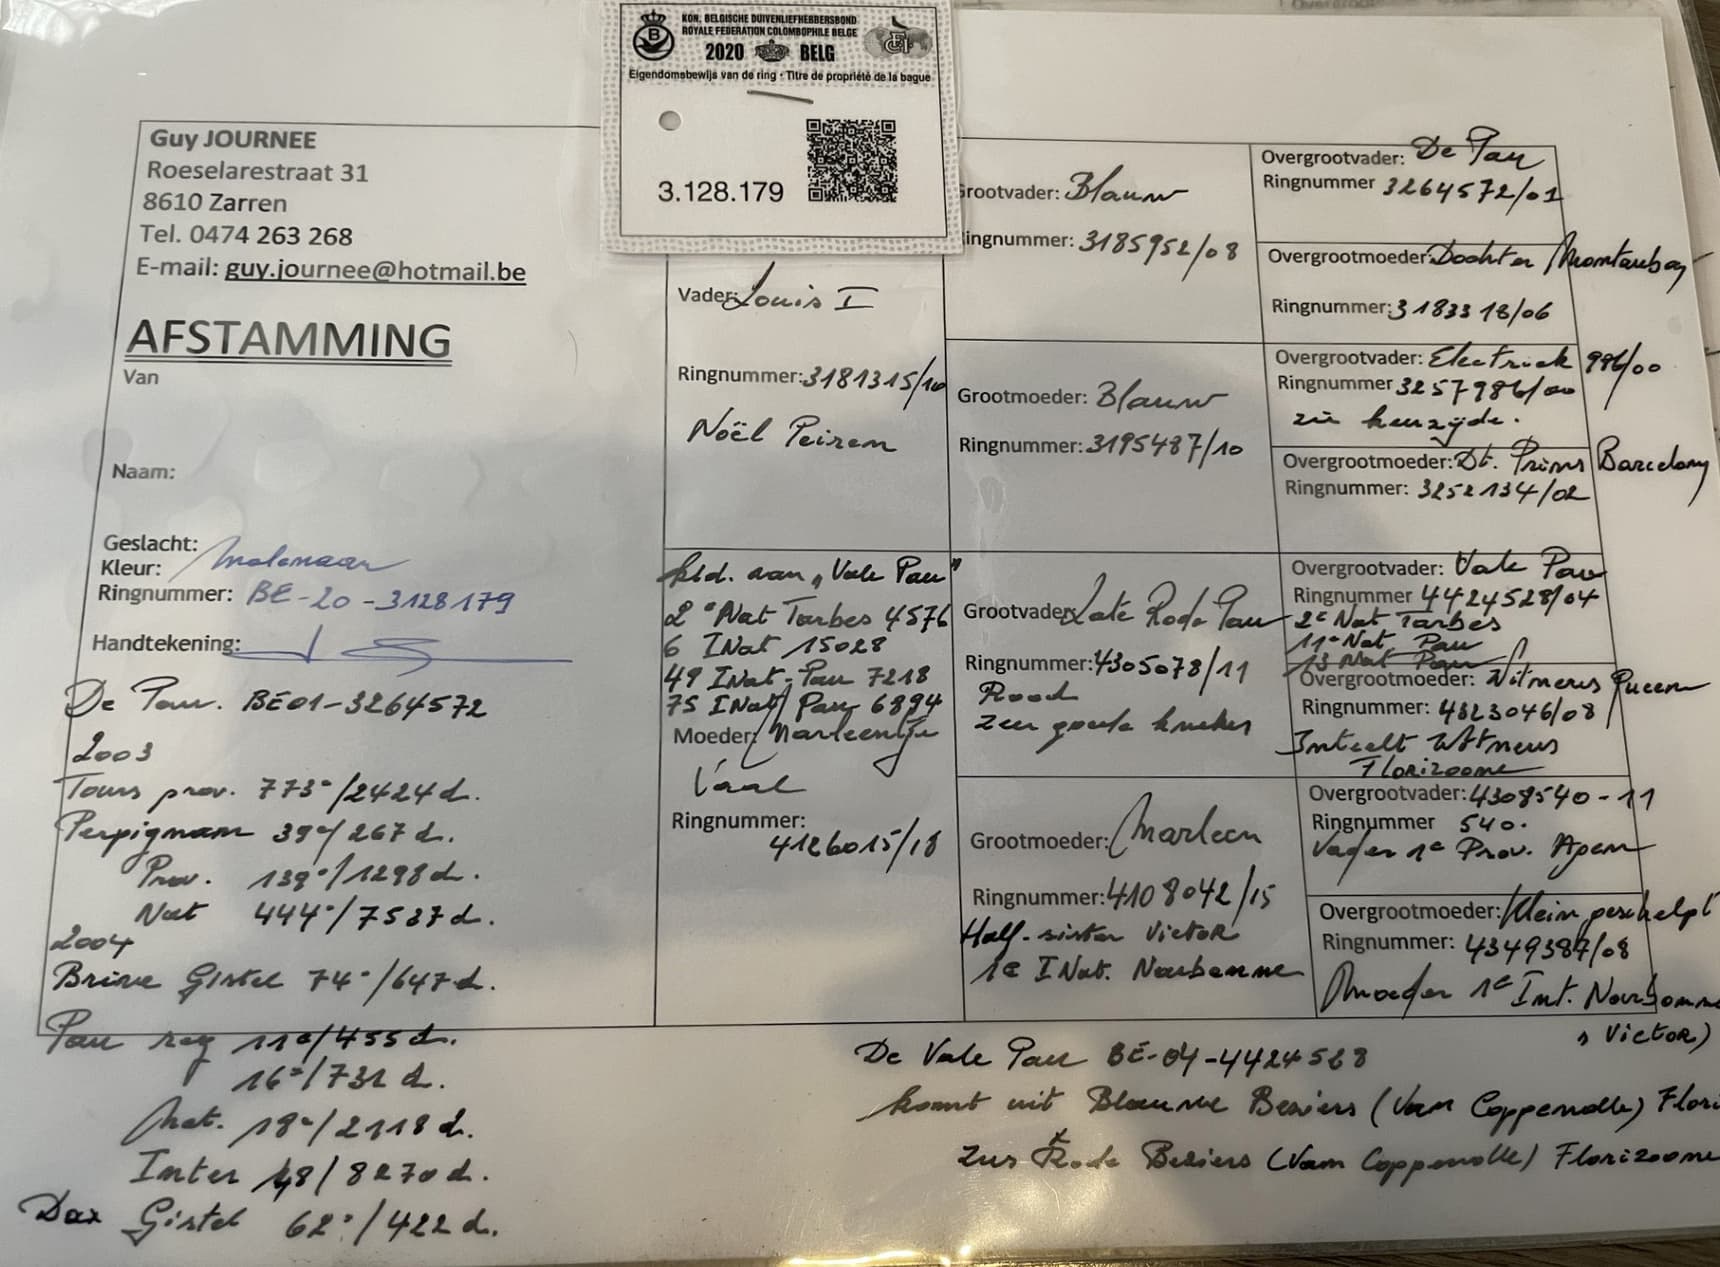 KON. BELGISCHE DUIVENLIEFHEBBERSBOND
ROYALE FEDERATION COLOMBOPHILE BELGE
2020 BELG
FCI
Eigendomsbewijs van de ring - Titre de propriété de la bague
3.128.179
Guy JOURNEE
Roeselarestraat 31
8610 Zarren
Tel. 0474 263 268
E-mail: guy.journee@hotmail.be
AFSTAMMING
Van
Naam:
Geslacht:
Kleur: Molenaar
Ringnummer: BE-20-3128179
Handtekening:
De Pau. BE01-3264572
2003
Tours prov. 773e/2424 d.
Perpignan 39e/267 d.
Prov. 139e/1298 d.
Nat 444e/7537 d.
2004
Brive Gistel 74e/647 d.
Pau reg 11e/455 d.
16e/731 d.
Nat. 18e/2118 d.
Inter 48/8270 d.
Dax Gistel 62e/422 d.
Vader: Louis I
Ringnummer: 3181315/10
Noël Peiren
kld. aan "Vale Pau"
2e Nat Tarbes 4576
6 INat 15028
49 INat Pau 7218
75 INat Pau 6894
Moeder: Marleentje
Vaal
Ringnummer:
4126015/18
Grootvader: Blauw
Ringnummer: 3185952/08
Grootmoeder: Blauw
Ringnummer: 3195487/10
Grootvader: Late Rode Pau
Ringnummer: 4305078/11
Rood
zeer goede kweker
Grootmoeder: Marleen
Ringnummer: 4108042/15
Half-sister Victor
1e INat. Narbonne
Overgrootvader: De Pau
Ringnummer 3264572/01
Overgrootmoeder: Dochter Montauban
Ringnummer: 3183318/06
Overgrootvader: Electriek 986/00
Ringnummer 3257986/00
zie keerzijde.
Overgrootmoeder: Dt. Prins Barcelona
Ringnummer: 3252134/02
Overgrootvader: Vale Pau
Ringnummer 4424528/04
2e Nat Tarbes
11e Nat Pau
13 Nat Pau
Overgrootmoeder: Witneus Queen
Ringnummer: 4323046/08
Inteelt Witneus
Florizoone
Overgrootvader: 4308540-11
Ringnummer 540.
Vader 1e Prov. Agen
Overgrootmoeder: Klein geschelpt
Ringnummer: 4349387/08
Moeder 1e Int. Narbonne
Victor)
De Vale Pau BE-04-4424528
komt uit Blauwe Beziers (Van Coppenolle) Flori
zus Rode Beziers (Van Coppenolle) Florizoone